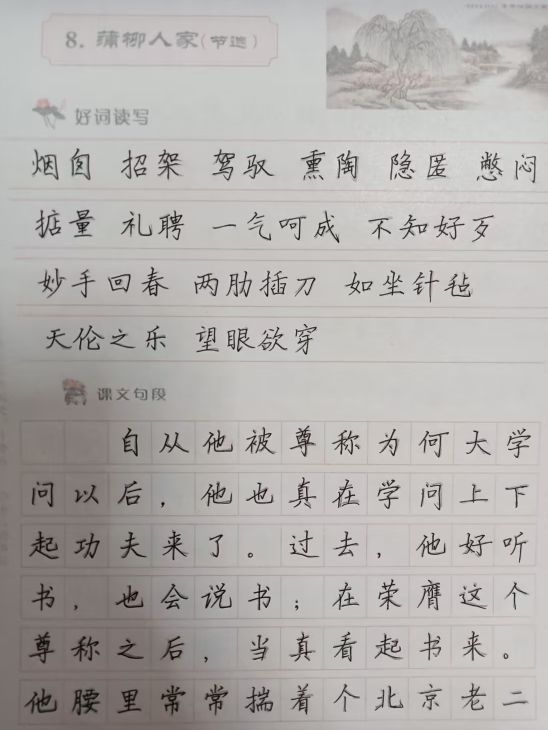 8. 蒲柳人家(节选)
好词读写
烟囱 招架 驾驭 熏陶 隐匿 憋闷
掂量 礼聘 一气呵成 不知好歹
妙手回春 两肋插刀 如坐针毡
天伦之乐 望眼欲穿
课文句段
自从他被尊称为何大学
问以后，他也真在学问上下
起功夫来了。过去，他好听
书，也会说书；在荣膺这个
尊称之后，当真看起书来。
他腰里常常揣着个北京老二